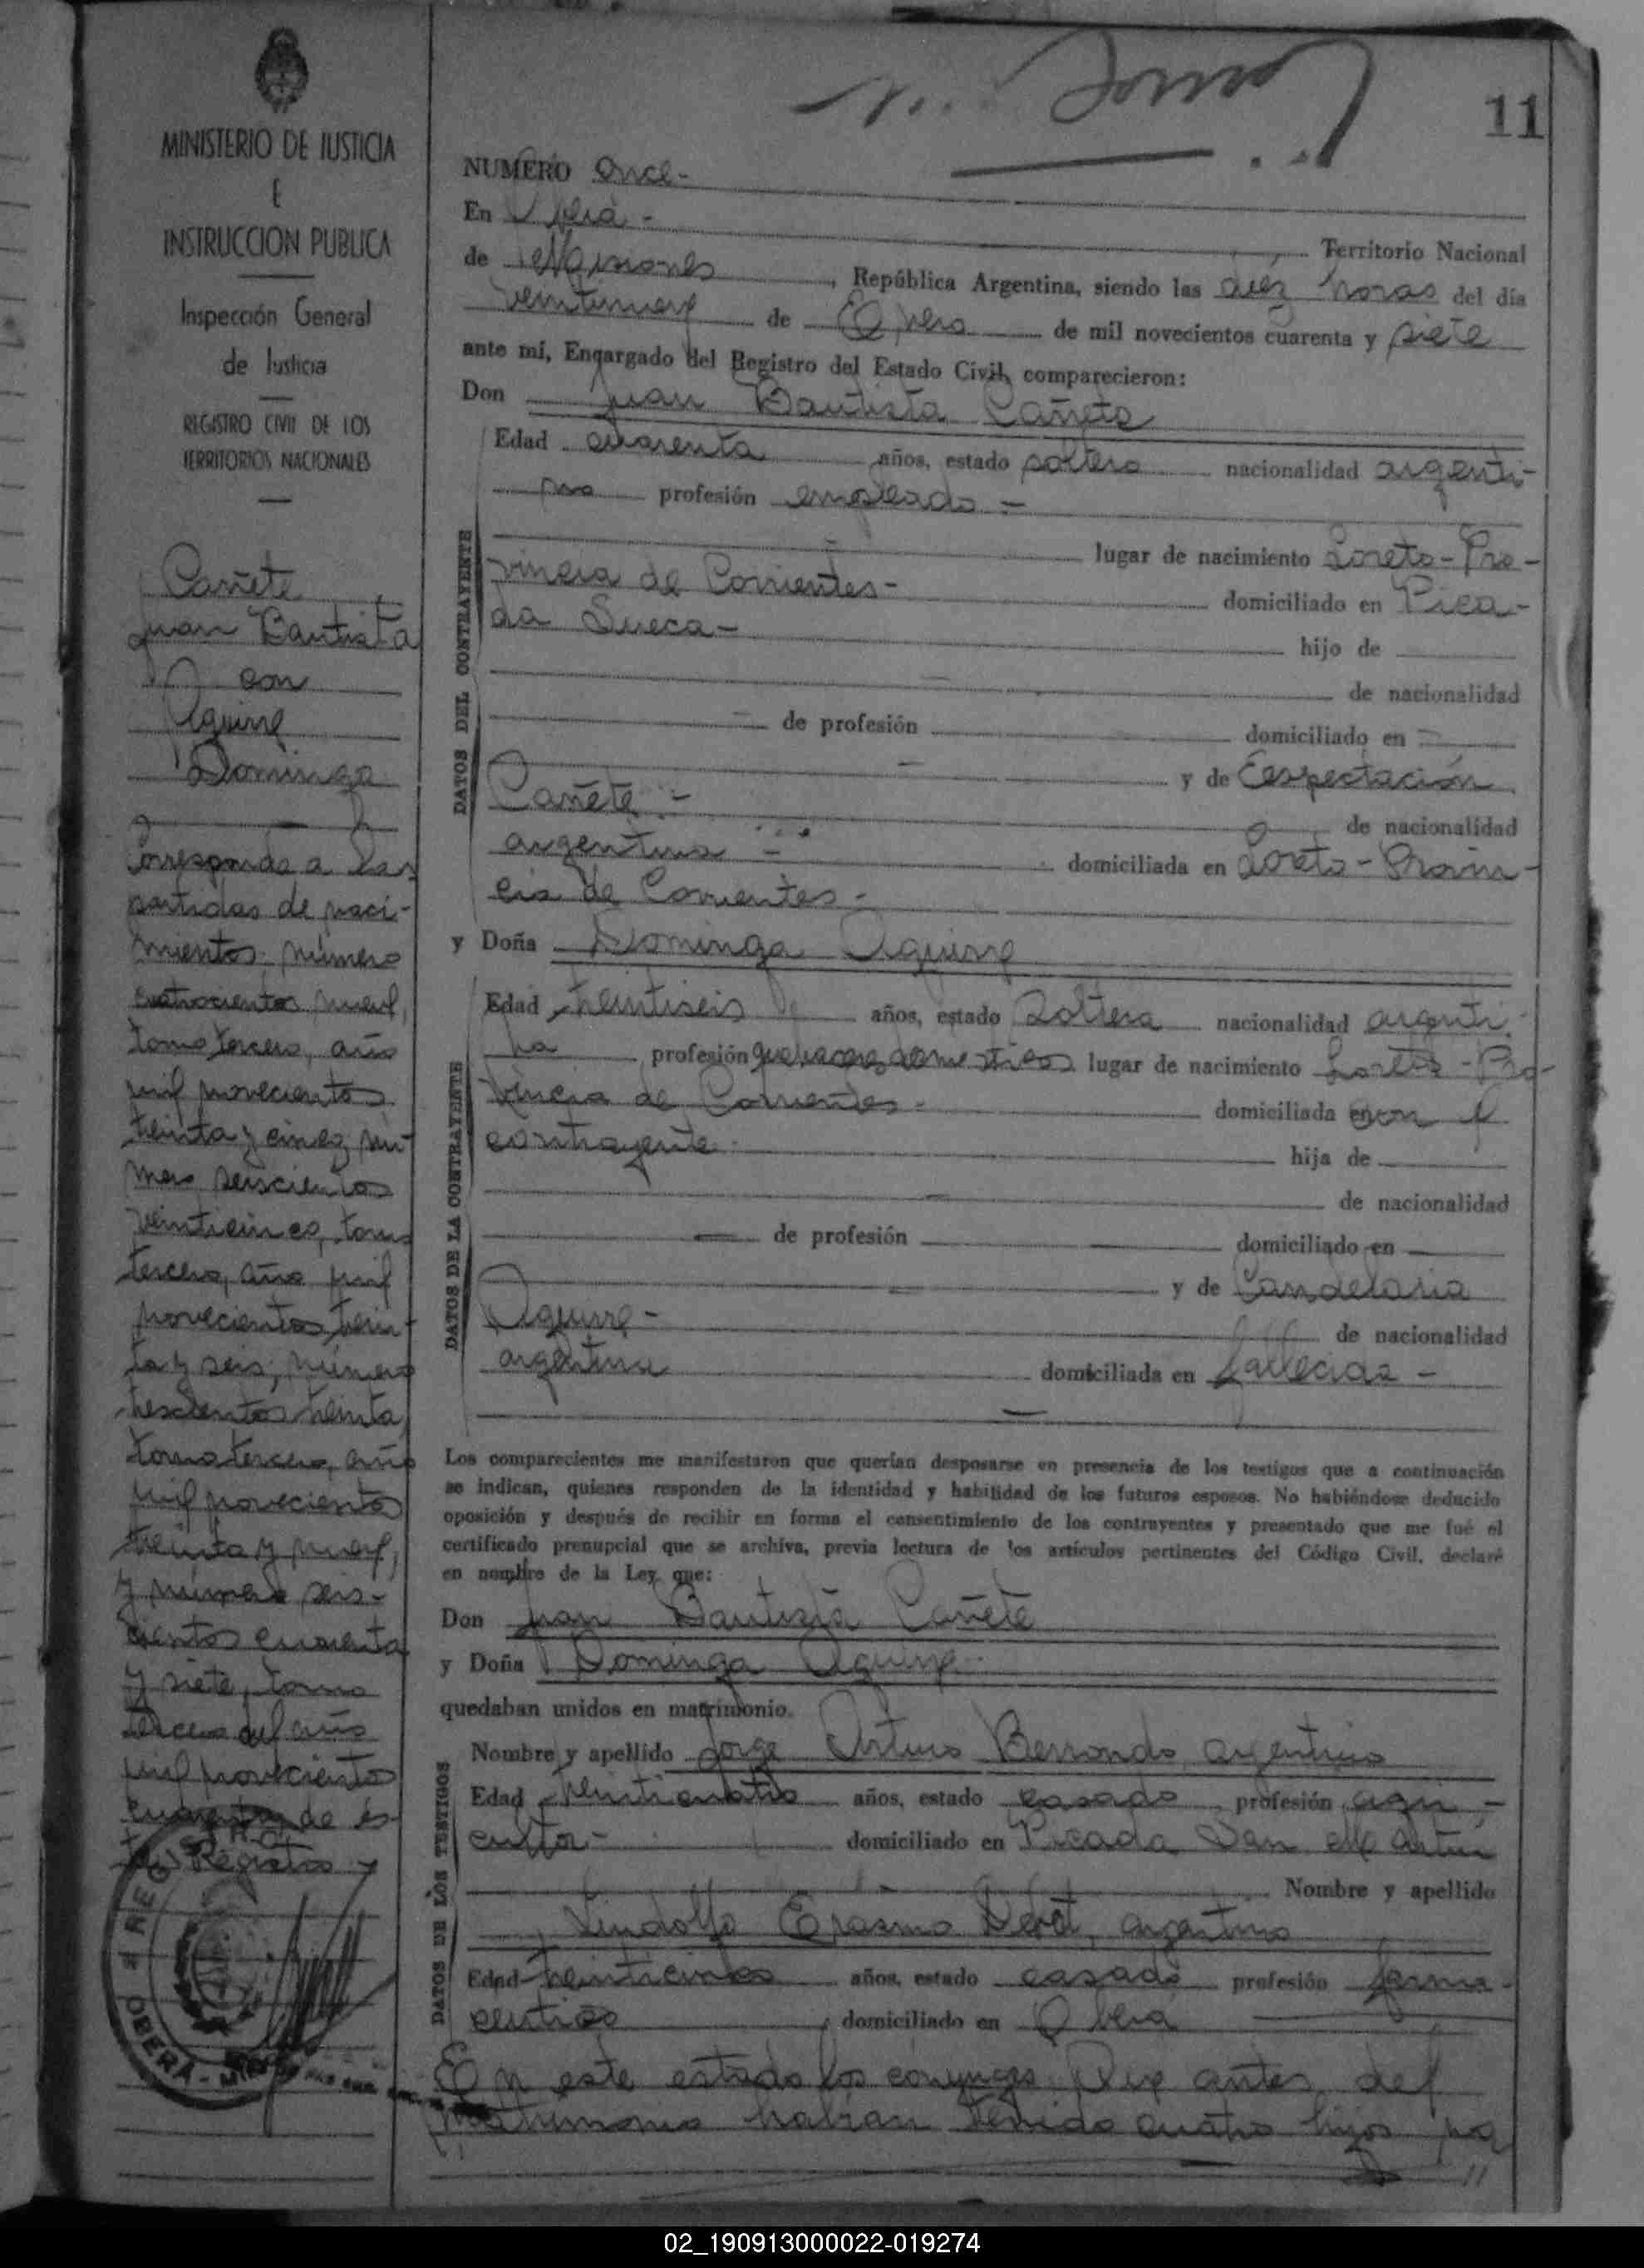 11
MINISTERIO DE JUSTICIA
E
INSTRUCCION PUBLICA
Inspección General
de Justicia
REGISTRO CIVIL DE LOS
TERRITORIOS NACIONALES
Cañete
Juan Bautista
con
Aguirre
Dominga
Corresponde a las
partidas de naci-
mientos: número
cuatrocientos nueve,
tomo tercero, año
mil novecientos
treinta y cinco, nú-
mero seiscientos
veinticinco, tomo
tercero, año mil
novecientos trein-
ta y seis; número
trescientos treinta,
tomo tercero, año
mil novecientos
treinta y nueve,
y número seis-
cientos cuarenta
y siete, tomo
tercero del año
mil novecientos
cuarenta de és-
te Registro y
OBERÁ - MI
NUMERO Once-
En Oberá -
Territorio Nacional
de Misiones, República Argentina, siendo las diez horas del día
veintinueve de Enero de mil novecientos cuarenta y siete
ante mí, Encargado del Registro del Estado Civil, comparecieron:
Don Juan Bautista Cañete
DATOS DEL CONTRAYENTE
Edad cuarenta años, estado soltero nacionalidad argenti-
no profesión empleado -
lugar de nacimiento Loreto - Pro-
vincia de Corrientes -
domiciliado en Pica-
da Sueca -
hijo de
de nacionalidad
de profesión domiciliado en
y de Espectación
Cañete -
de nacionalidad
argentina - domiciliada en Loreto - Provin-
cia de Corrientes -
y Doña Dominga Aguirre
DATOS DE LA CONTRAYENTE
Edad treintiseis años, estado Soltera nacionalidad argenti-
na profesión quehaceres domesticos lugar de nacimiento Loreto - Pro-
vincia de Corrientes - domiciliada en con el
contrayente - hija de
de nacionalidad
de profesión domiciliado en
y de Candelaria
Aguirre -
de nacionalidad
argentina domiciliada en fallecida -
Los comparecientes me manifestaron que querían desposarse en presencia de los testigos que a continuación
se indican, quienes responden de la identidad y habilidad de los futuros esposos. No habiéndose deducido
oposición y después de recibir en forma el consentimiento de los contrayentes y presentado que me fué el
certificado prenupcial que se archiva, previa lectura de los artículos pertinentes del Código Civil, declaré
en nombre de la Ley que:
Don Juan Bautista Cañete
y Doña Dominga Aguirre
quedaban unidos en matrimonio.
DATOS DE LOS TESTIGOS
Nombre y apellido Jorge Arturo Berrondo, argentino
Edad treinticuatro años, estado casado profesión agri-
cultor - domiciliado en Picada San Martín
Nombre y apellido
Lindolfo Erasmo argentino
Edad treinticinco años, estado casado profesión farma-
ceutico domiciliado en Oberá
En este estado los cónyuges que antes del
matrimonio habían tenido cuatro hijos
02_190913000022-019274